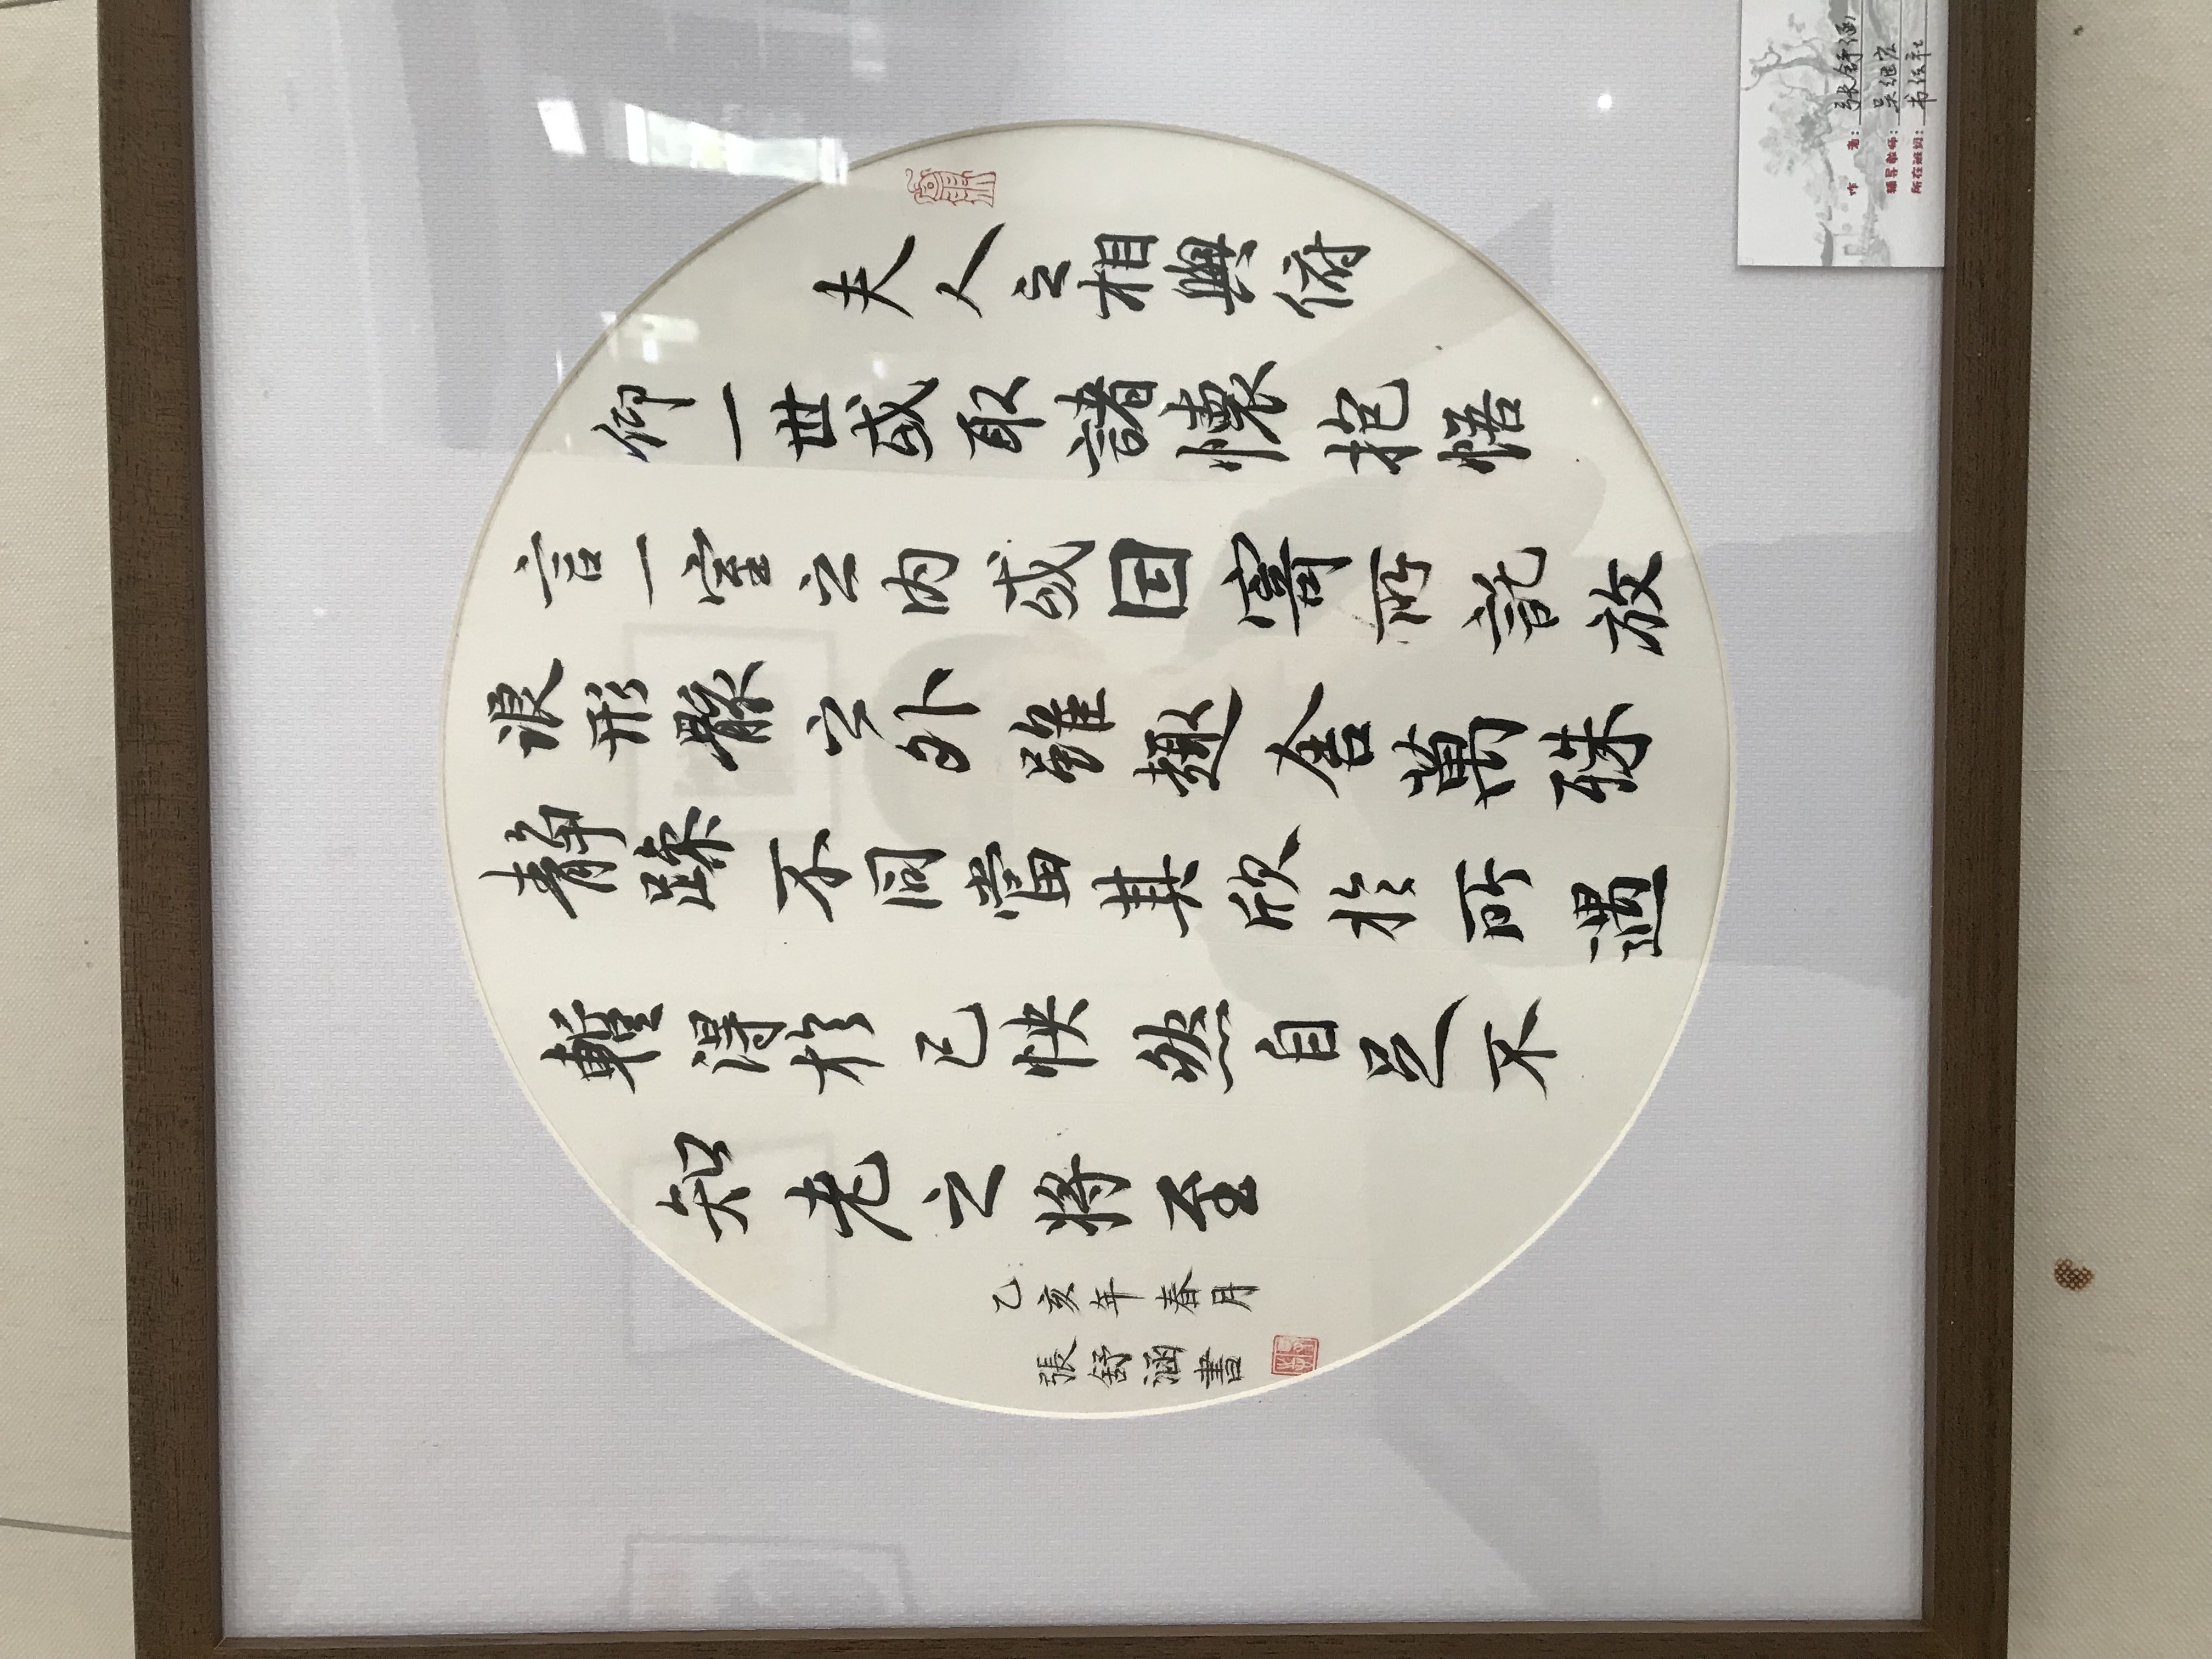 夫人之相與俯
仰一世或取諸懷抱悟
言一室之内或因寄所託放
浪形骸之外雖趣舍萬殊
静躁不同當其欣於所遇
暫得於己怏然自足不
知老之將至
乙亥年春月
張舒涵書
作者：张舒涵
辅导教师：吴继宏
所在班级：书法社